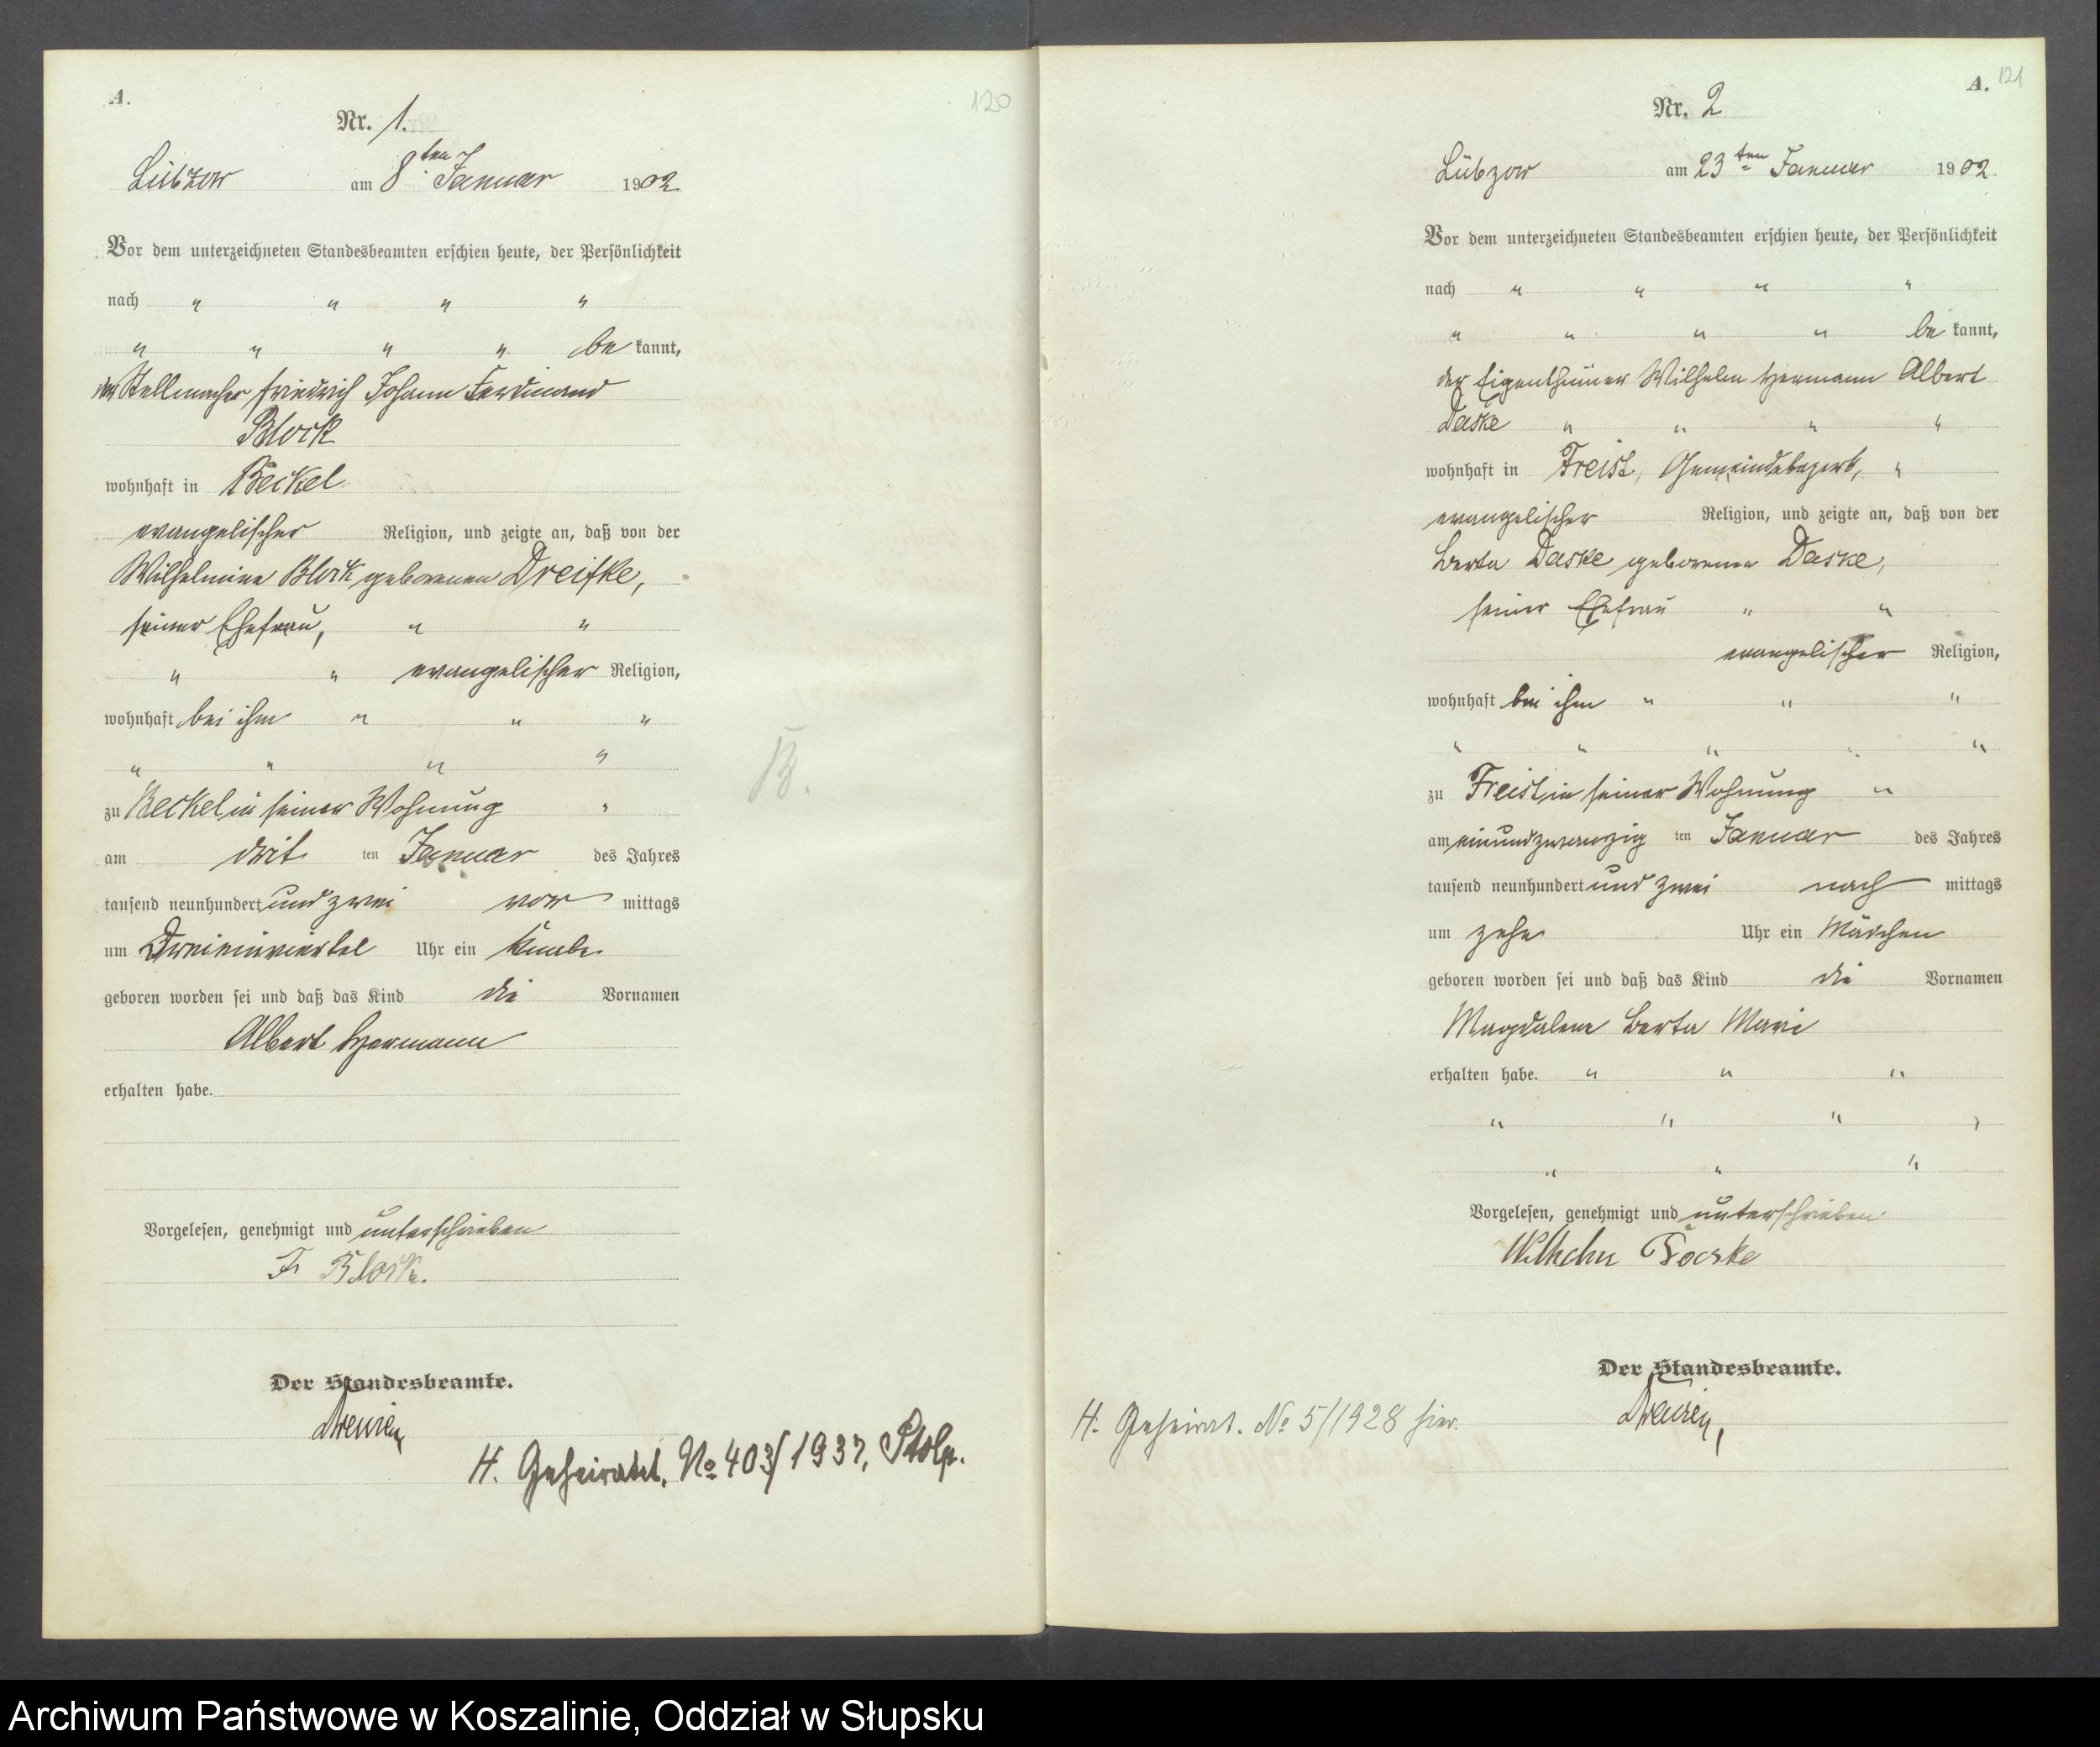 A.
120
Nr. 1.
Lübzow am 8ten Januar 1902
Vor dem unterzeichneten Standesbeamten erschien heute, der Persönlichkeit
nach " " " "
" " " " be kannt,
der Stellmacher Friedrich Johann Ferdinand
Block
wohnhaft in Beckel
evangelischer Religion, und zeigte an, daß von der
Wilhelmine Block geborenen Dreifke,
seiner Ehefrau, " "
" " evangelischer Religion,
wohnhaft bei ihm " " "
" " " "
zu Beckel, in seiner Wohnung "
am drit ten Januar des Jahres
tausend neunhundert und zwei vor mittags
um Dreieinviertel Uhr ein Knabe
geboren worden sei und daß das Kind die Vornamen
Albert Hermann
erhalten habe.
Vorgelesen, genehmigt und unterschrieben
F. Block.
Der Standesbeamte.
H. Geheiratet. No 403/1937, Stolp.
B.
A. 121
Nr. 2
Lübzow am 23ten Januar 1902
Vor dem unterzeichneten Standesbeamten erschien heute, der Persönlichkeit
nach " " " "
" " " " be kannt,
der Eigenthümer Wilhelm Hermann Albert
Daske " " " "
wohnhaft in Freist, Gemeindebezirk, "
evangelischer Religion, und zeigte an, daß von der
Berta Daske geborene Daske,
seiner Ehefrau " "
evangelischer Religion,
wohnhaft bei ihm " " "
" " " " "
zu Freist, in seiner Wohnung "
am einundzwanzig ten Januar des Jahres
tausend neunhundert und zwei nach mittags
um zehn Uhr ein Mädchen
geboren worden sei und daß das Kind die Vornamen
Magdalena Berta Marie
erhalten habe. " " "
" " " "
" " "
Vorgelesen, genehmigt und unterschrieben
Wilhelm Daske
Der Standesbeamte.
H. Geheirat. No 5/1928 hier.
Archiwum Państwowe w Koszalinie, Oddział w Słupsku